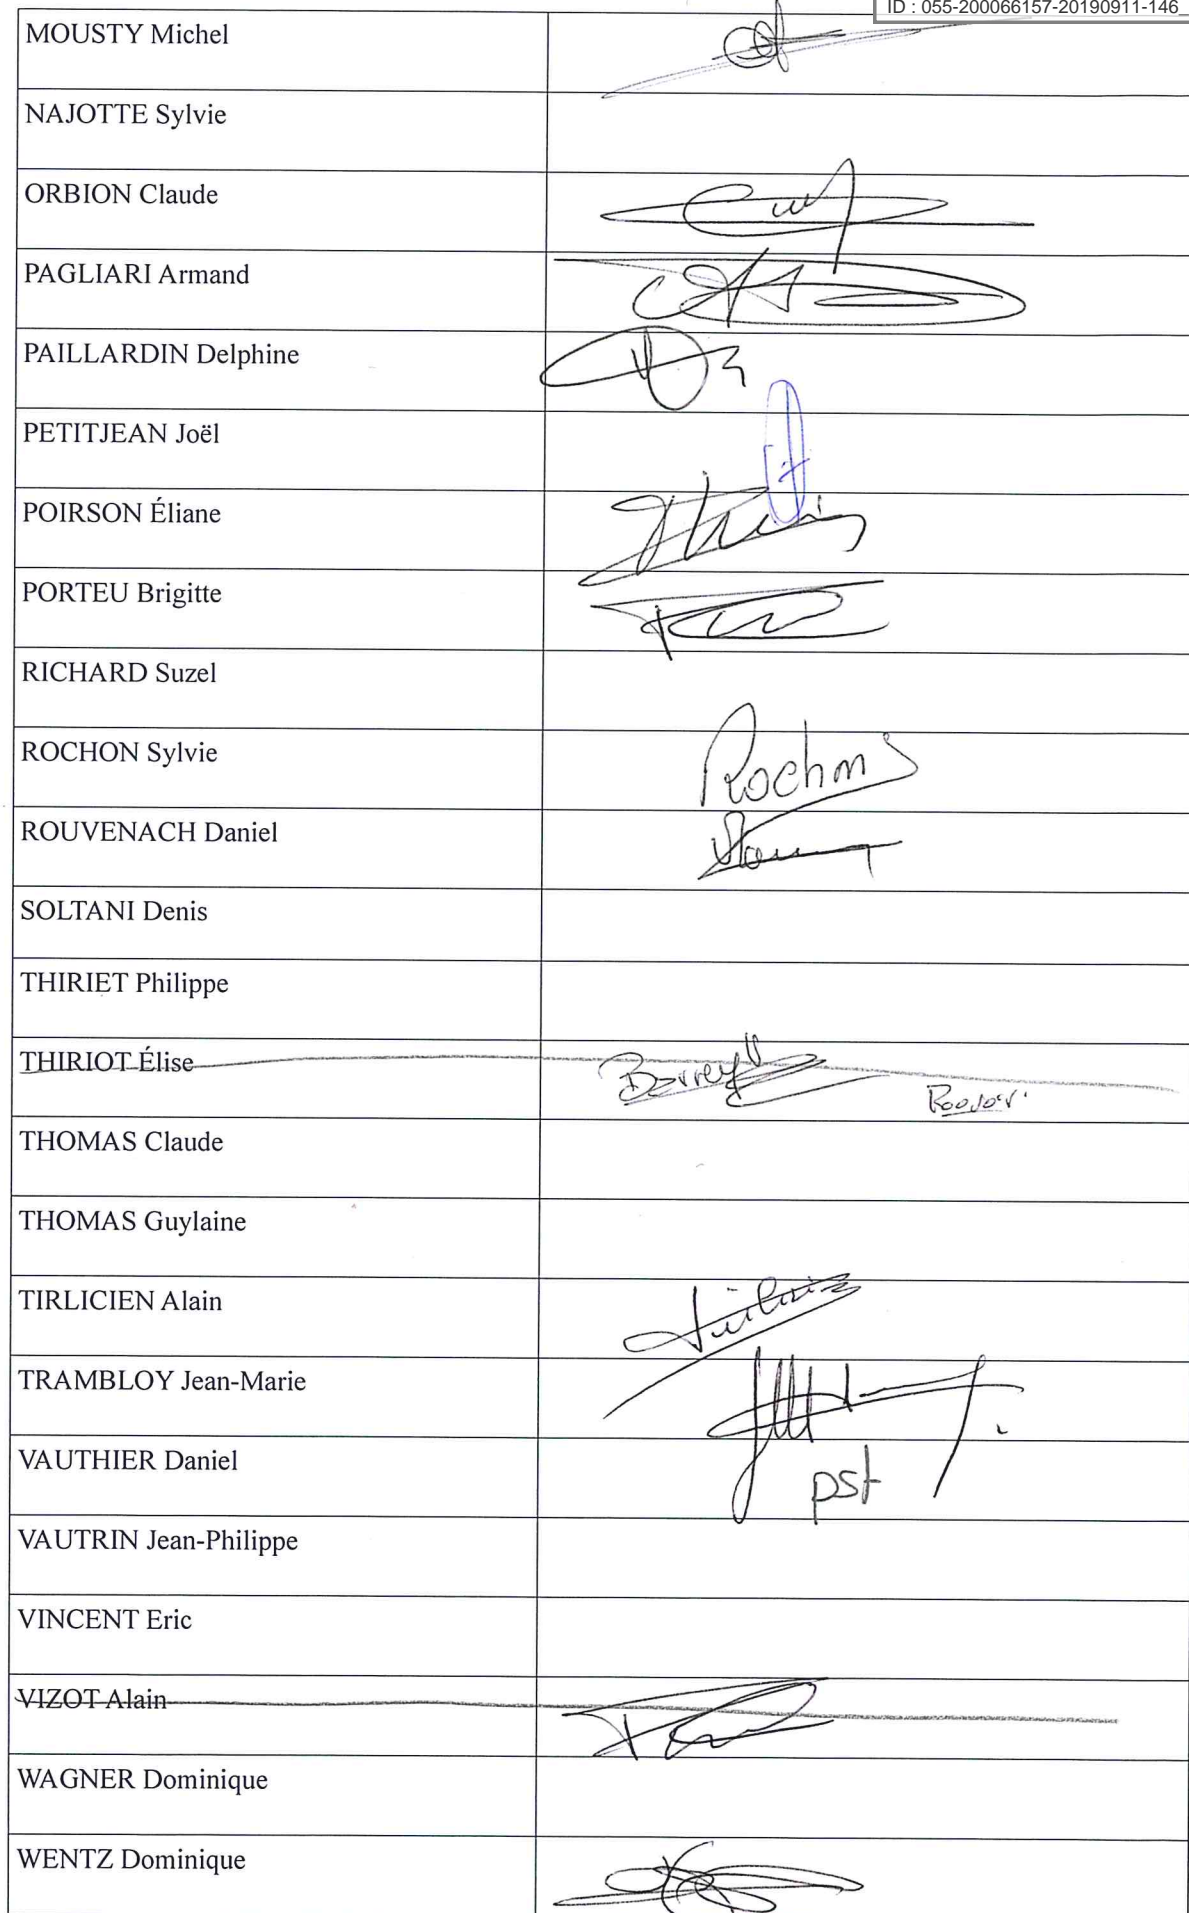 ID : 055-200066157-20190911-146_
MOUSTY Michel
NAJOTTE Sylvie
ORBION Claude
PAGLIARI Armand
PAILLARDIN Delphine
PETITJEAN Joël
POIRSON Éliane
PORTEU Brigitte
RICHARD Suzel
ROCHON Sylvie
Rochon
ROUVENACH Daniel
SOLTANI Denis
THIRIET Philippe
THIRIOT Élise
THOMAS Claude
THOMAS Guylaine
TIRLICIEN Alain
TRAMBLOY Jean-Marie
VAUTHIER Daniel
pst
VAUTRIN Jean-Philippe
VINCENT Eric
VIZOT Alain
WAGNER Dominique
WENTZ Dominique